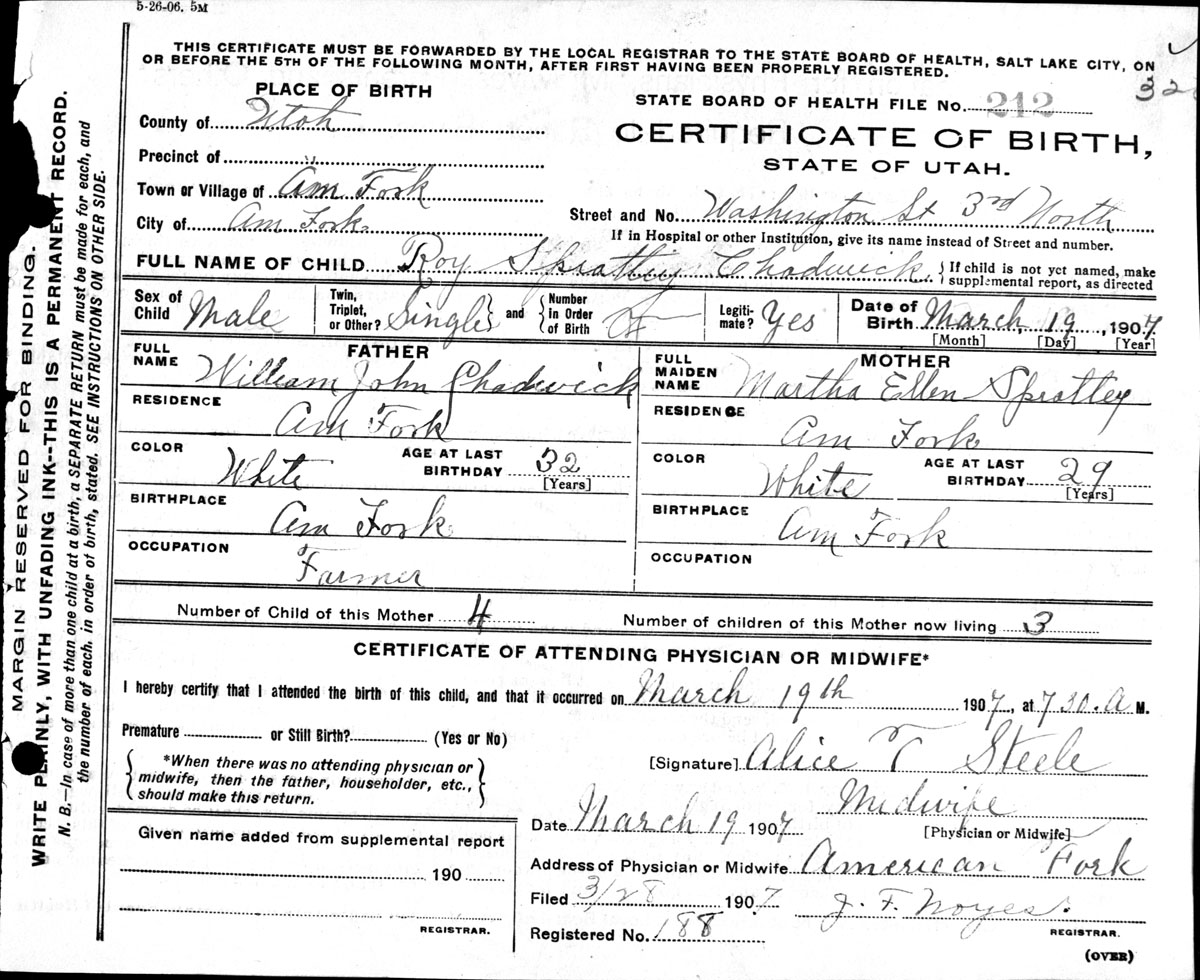 5-26-06. 5M
THIS CERTIFICATE MUST BE FORWARDED BY THE LOCAL REGISTRAR TO THE STATE BOARD OF HEALTH, SALT LAKE CITY, ON
OR BEFORE THE 5TH OF THE FOLLOWING MONTH, AFTER FIRST HAVING BEEN PROPERLY REGISTERED.
PLACE OF BIRTH
STATE BOARD OF HEALTH FILE No. 212
County of Utah
CERTIFICATE OF BIRTH,
STATE OF UTAH.
Precinct of
Town or Village of Am Fork
City of Am Fork
Street and No. Washington St 3rd North
If in Hospital or other Institution, give its name instead of Street and number.
FULL NAME OF CHILD Roy Sprattey Chadwick
{If child is not yet named, make
supplemental report, as directed
Sex of Child Male
Twin, Triplet, or Other? Single and {Number in Order of Birth
Legiti- mate? Yes
Date of Birth March 19, 1907
[Month] [Day] [Year]
FATHER
FULL NAME William John Chadwick
RESIDENCE
Am Fork
COLOR White
AGE AT LAST BIRTHDAY 32
[Years]
BIRTHPLACE
Am Fork
OCCUPATION
Farmer
MOTHER
FULL MAIDEN NAME Martha Ellen Sprattey
RESIDENCE
Am Fork
COLOR White
AGE AT LAST BIRTHDAY 29
[Years]
BIRTHPLACE
Am Fork
OCCUPATION
Number of Child of this Mother 4
Number of children of this Mother now living 3
CERTIFICATE OF ATTENDING PHYSICIAN OR MIDWIFE*
I hereby certify that I attended the birth of this child, and that it occurred on March 19th 1907, at 7 30. A M.
Premature or Still Birth? (Yes or No)
{*When there was no attending physician or
midwife, then the father, householder, etc.,
should make this return.}
[Signature] Alice T Steele
Midwife
[Physician or Midwife]
Date March 19 1907
Address of Physician or Midwife American Fork
Filed 3/28 1907 J. F. Noyes.
REGISTRAR.
Registered No. 188
(OVER)
Given name added from supplemental report
190
REGISTRAR.
MARGIN RESERVED FOR BINDING.
WRITE PLAINLY, WITH UNFADING INK--THIS IS A PERMANENT RECORD.
N. B.—In case of more than one child at a birth, a SEPARATE RETURN must be made for each, and
the number of each, in order of birth, stated. SEE INSTRUCTIONS ON OTHER SIDE.